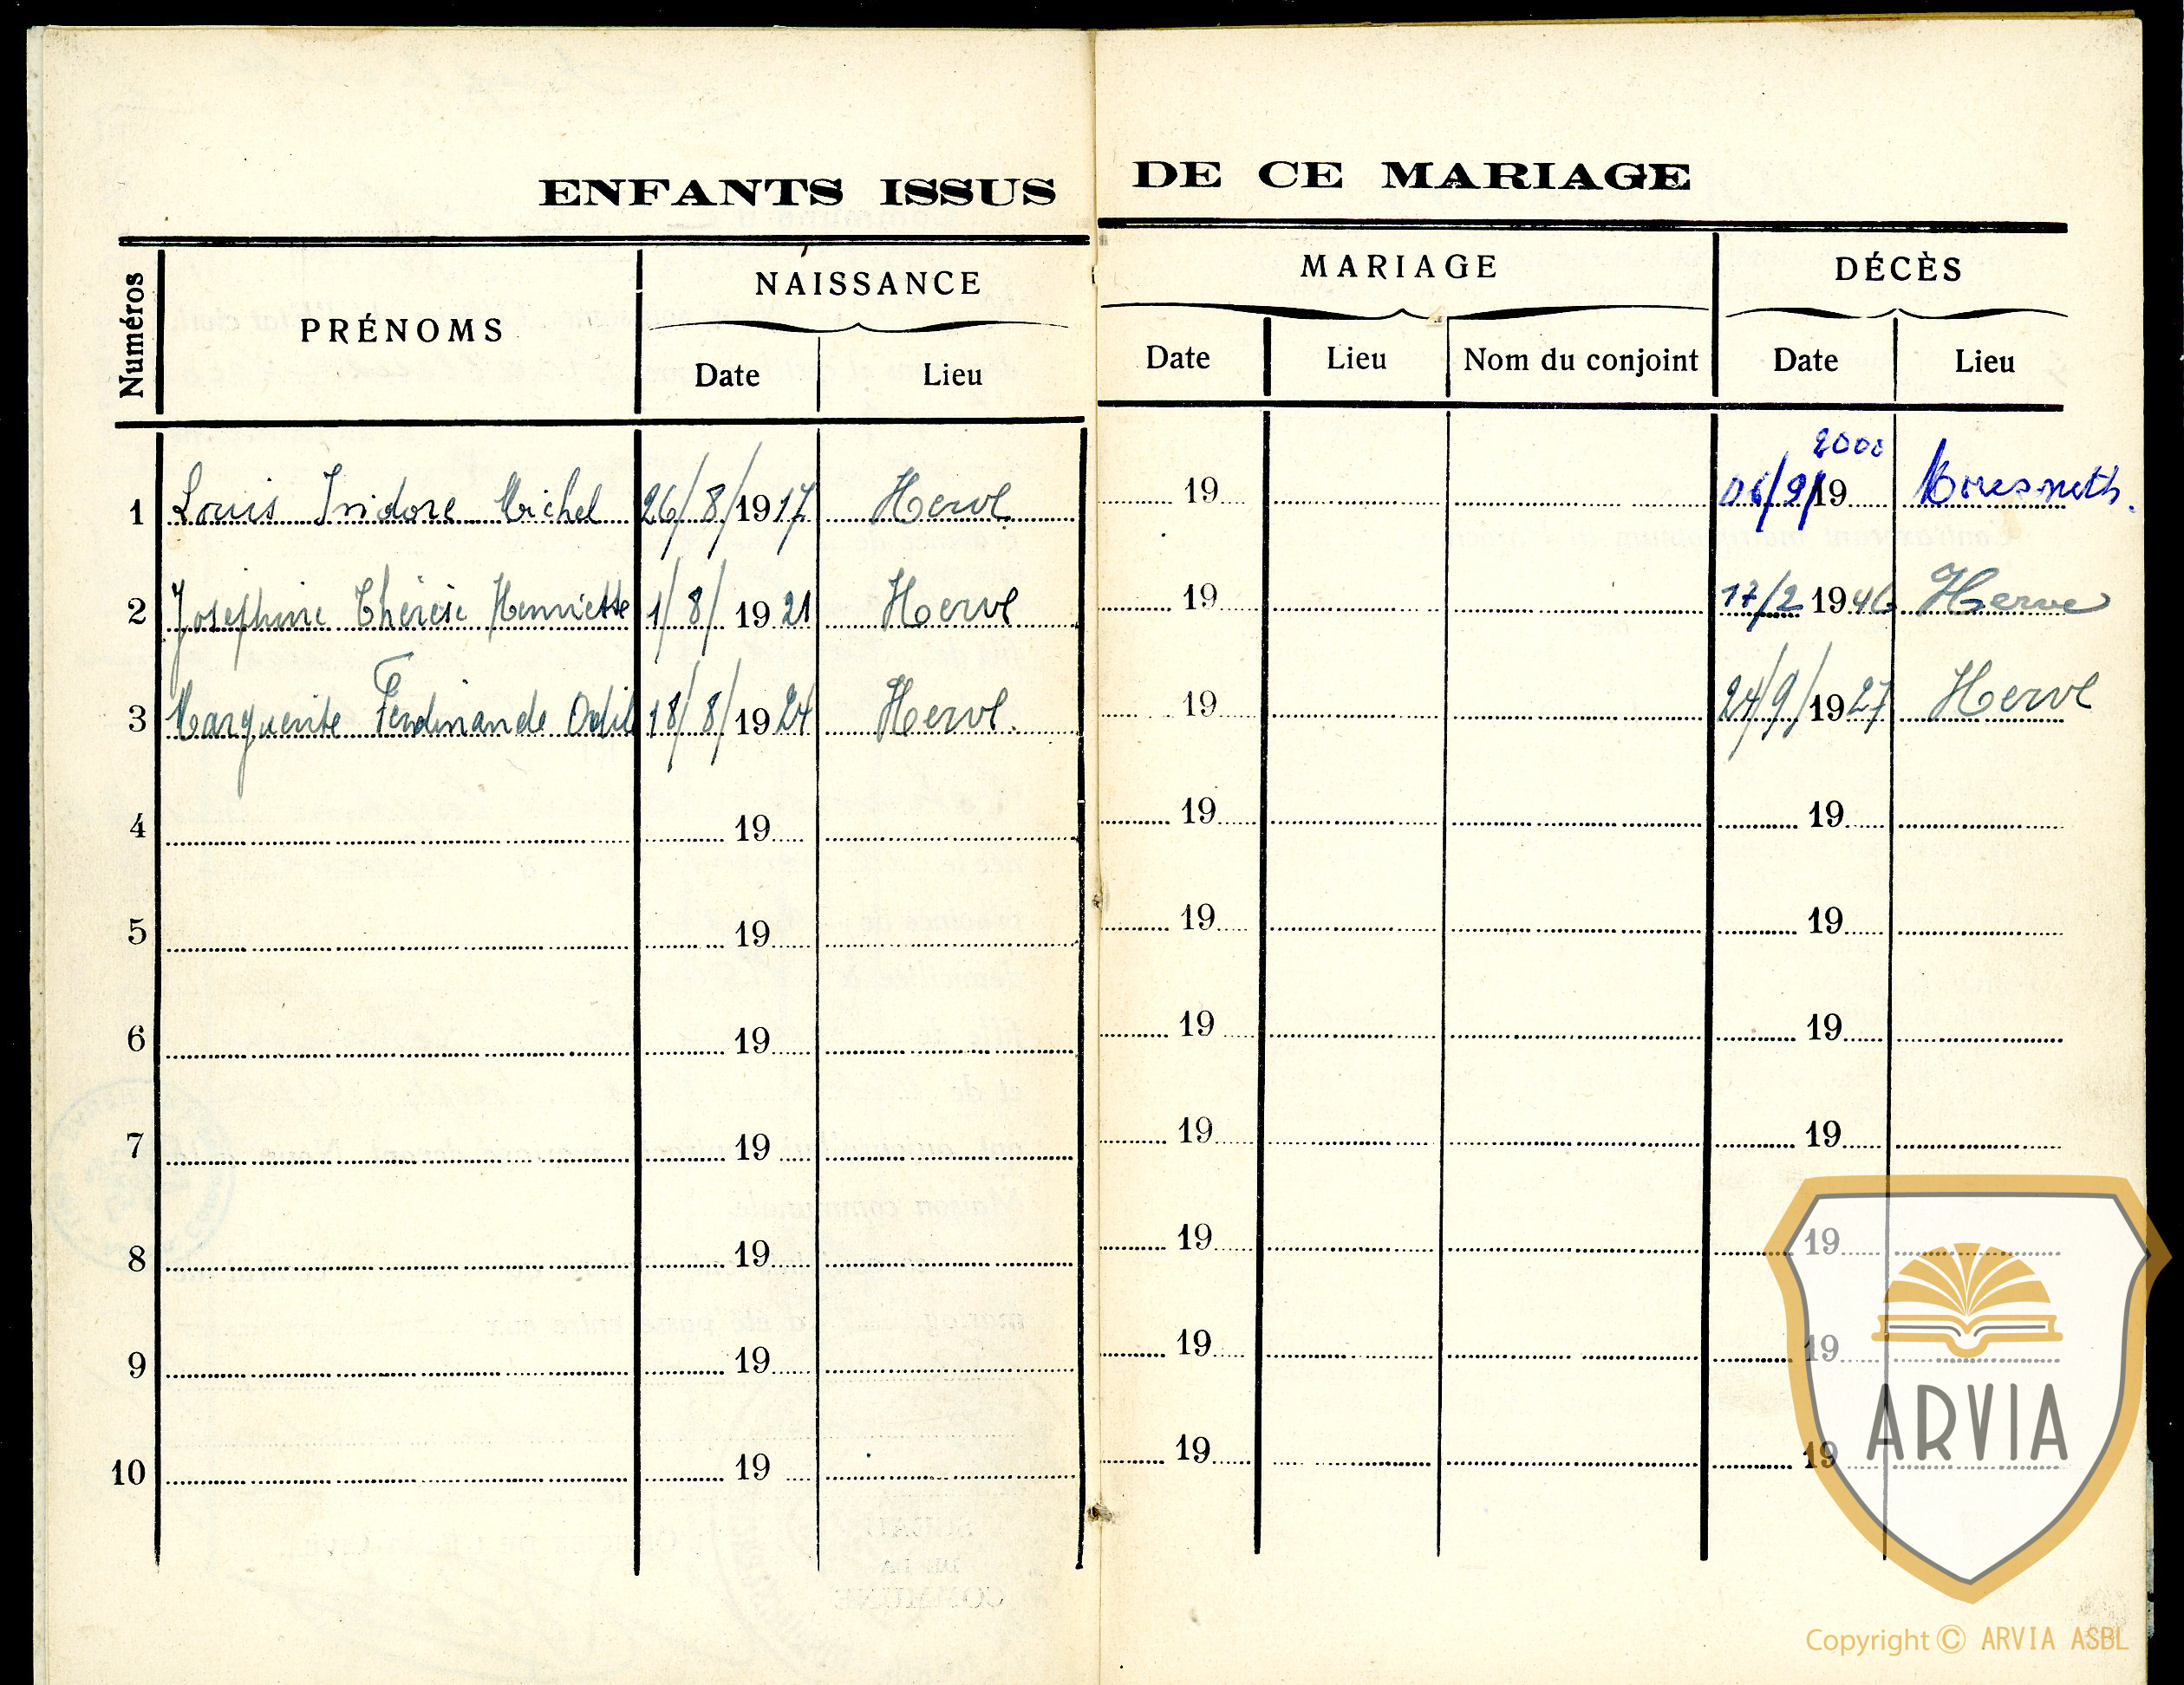 ENFANTS ISSUS DE CE MARIAGE
Numéros PRÉNOMS NAISSANCE MARIAGE DÉCÈS
Date Lieu Date Lieu Nom du conjoint Date Lieu
2000
1 Louis Isidore Michel 26/8/1917 Herve 19 06/9/19 Moresneth.
2 Josephine Thérèse Henriette 1/8/1921 Herve 19 17/2 1946 Herve
3 Marguerite Ferdinande Odil 18/8/1924 Herve. 19 24/9/1927 Herve
4 19 19 19
5 19 19 19
6 19 19 19
7 19 19 19
8 19 19 19
9 19 19 19
10 19 19 19
ARVIA
Copyright © ARVIA ASBL